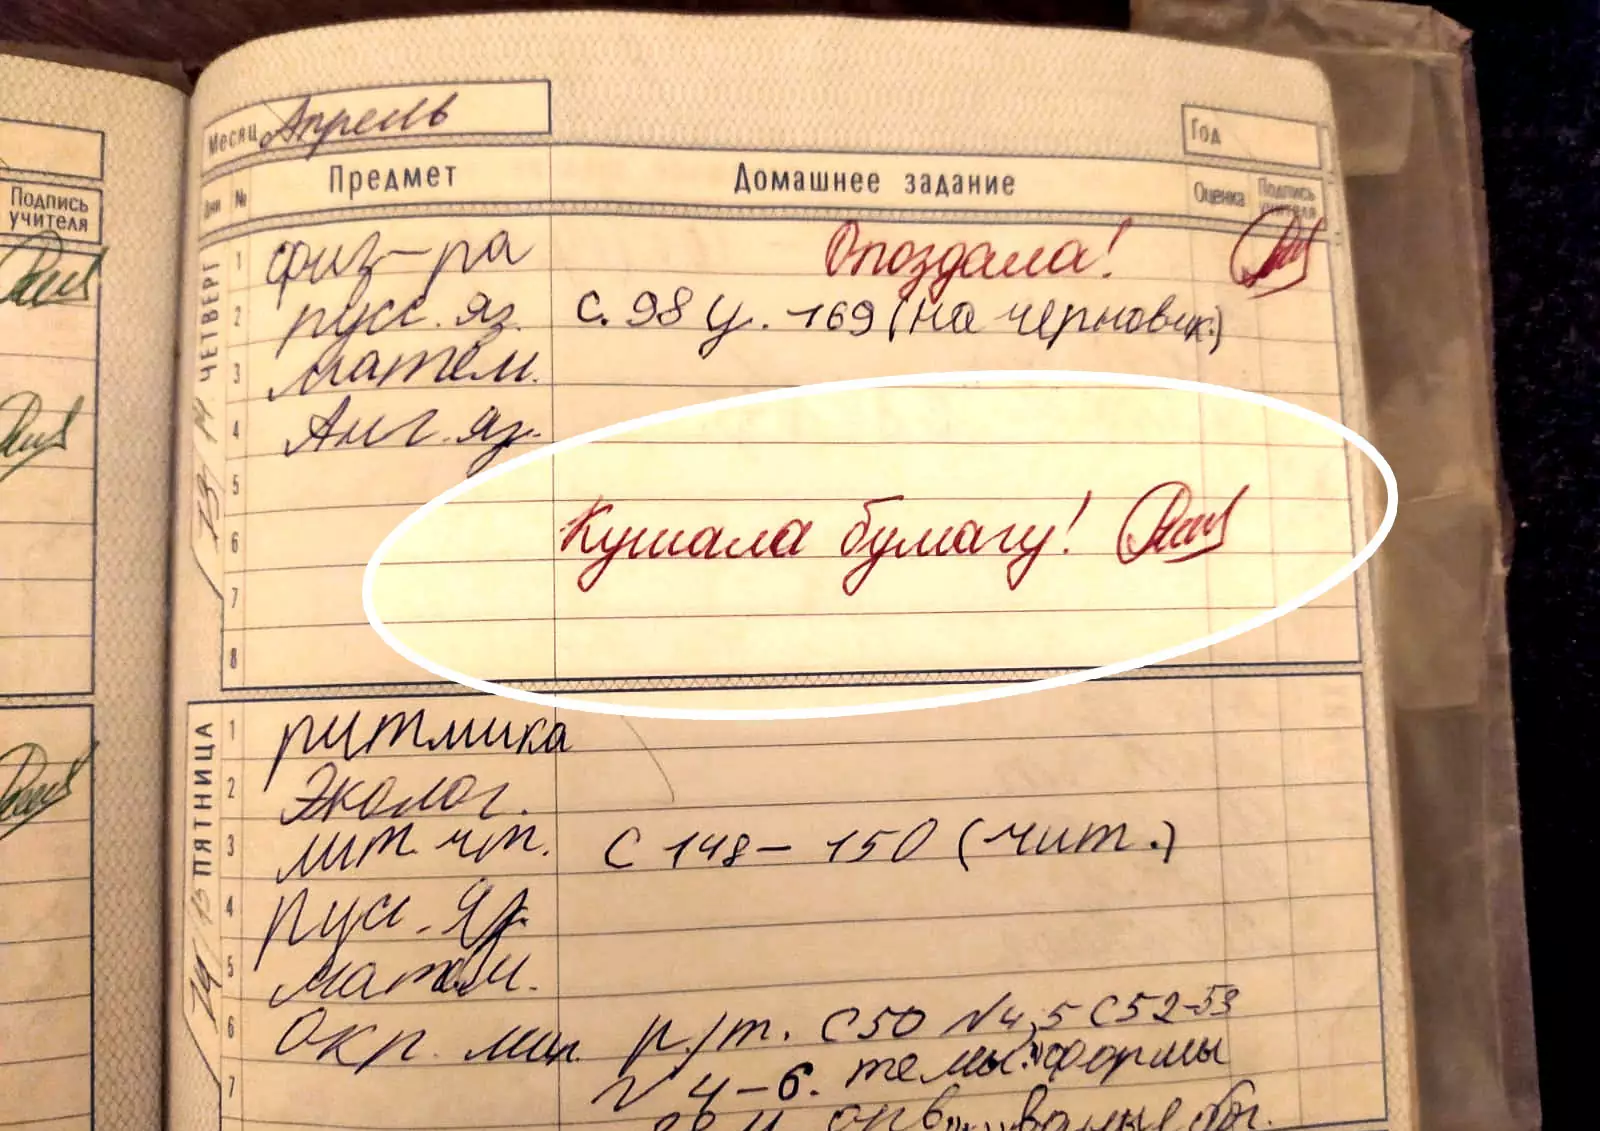 Подпись
учителя
Месяц Апрель
Год
Дни № Предмет Домашнее задание Оценка Подпись учителя
ЧЕТВЕРГ
1 физ-ра Опоздала!
2 русс. яз. с. 98 у. 169 (на черновик.)
3 матем.
4 Анг. яз.
5
6 Кушала бумагу!
7
8
ПЯТНИЦА
1 ритмика
2 Эколог.
3 лит. чт. С 148-150 (чит.)
4 рус. яз.
5 матем.
6 Окр. мир. р/т. С50 №4,5 С52-53
7 № 4-6. темы: "формы